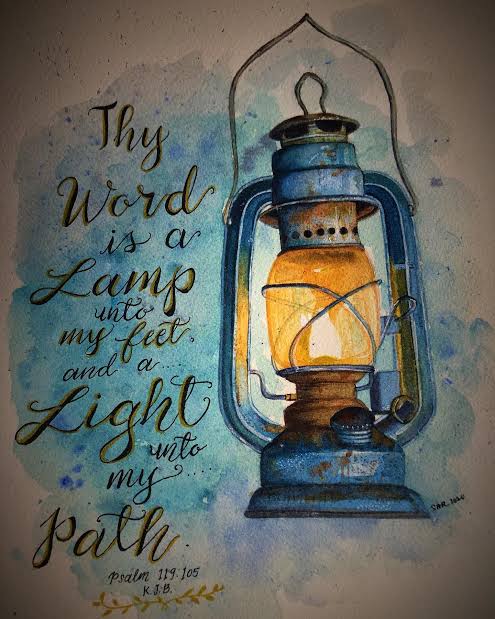 Thy
Word
is a
Lamp
unto
my feet,
and a....
Light
unto
my....
Path.
Psalm 119:105
K.J.B.